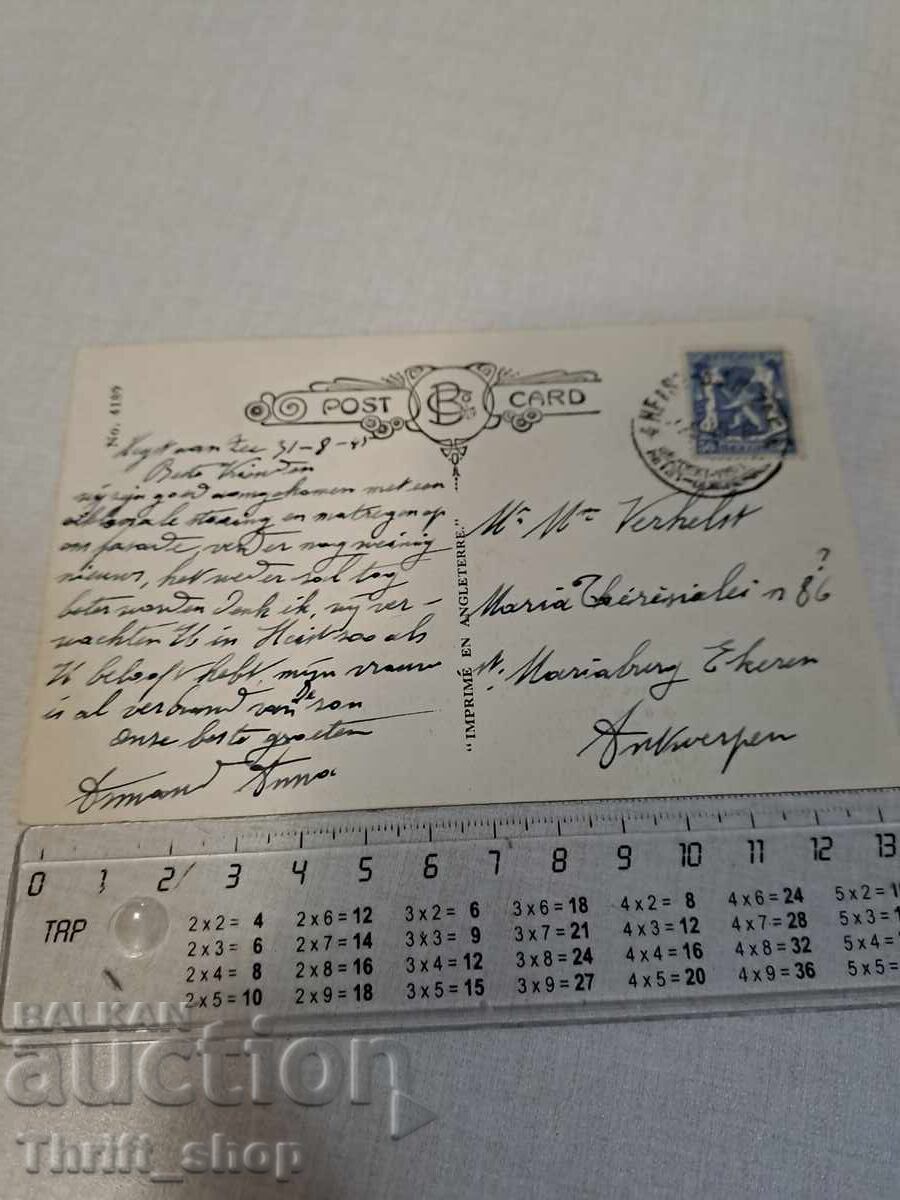 No. 4189
POST CARD
B &
"IMPRIMÉ EN ANGLETERRE."
aan Zee 31-8-
Beste Vrienden
wij zijn goed aangekomen met een
en matregen op
verder nog weinig
nieuws, het weder sal tog
beter worden denk ik, wij ver-
wachten U in Heist soo als
U belooft hebt, mijn vrouw
is al verbrand van De son
Onze beste groeten
Armand Anna
Mr Mme Verhelst
Maria Theresialei n 86 ?
St. Mariaburg Ekeren
Antwerpen
0 1 2 3 4 5 6 7 8 9 10 11 12 13
TAP
2 x 2 = 4 2 x 6 = 12 3 x 2 = 6 3 x 6 = 18 4 x 2 = 8 4 x 6 = 24 5 x 2 = 1
2 x 3 = 6 2 x 7 = 14 3 x 3 = 9 3 x 7 = 21 4 x 3 = 12 4 x 7 = 28 5 x 3 = 1
2 x 4 = 8 2 x 8 = 16 3 x 4 = 12 3 x 8 = 24 4 x 4 = 16 4 x 8 = 32 5 x 4 =
2 x 5 = 10 2 x 9 = 18 3 x 5 = 15 3 x 9 = 27 4 x 5 = 20 4 x 9 = 36 5 x 5 =
BALKAN
auction
Thrift_shop